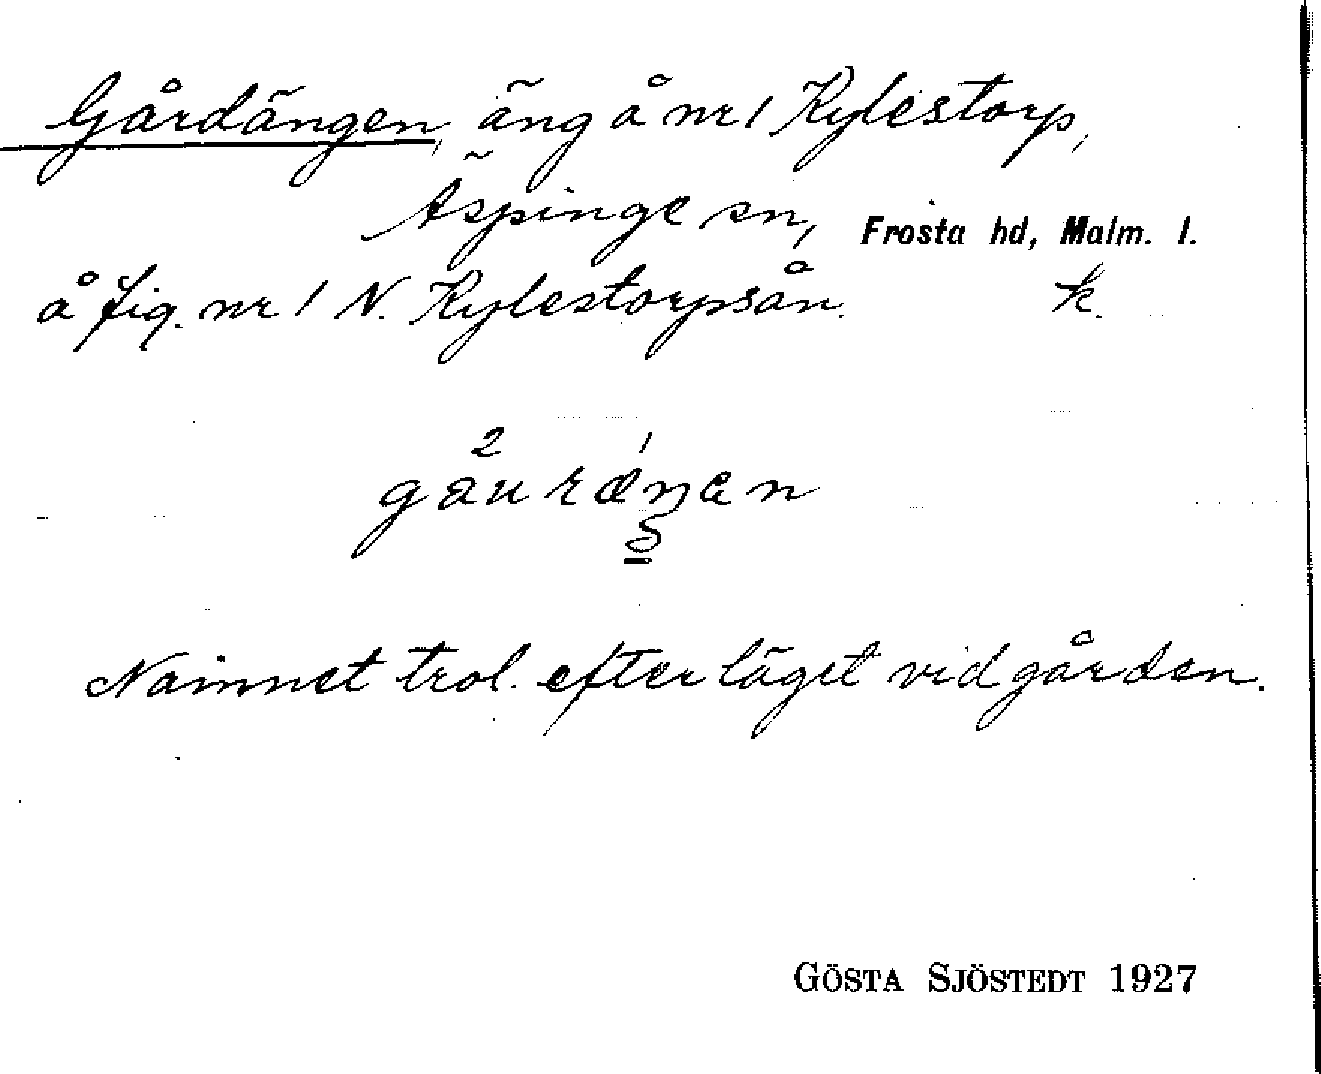 Gårdängen, äng å nr 1 Kylestorp,
Äspinge sn, Frosta hd, Malm. l.
å fig. nr 1 N. Kylestorpsån. k.
2 1
gåuræŋen
Namnet trol. efter läget vid gården.
GÖSTA SJÖSTEDT 1927